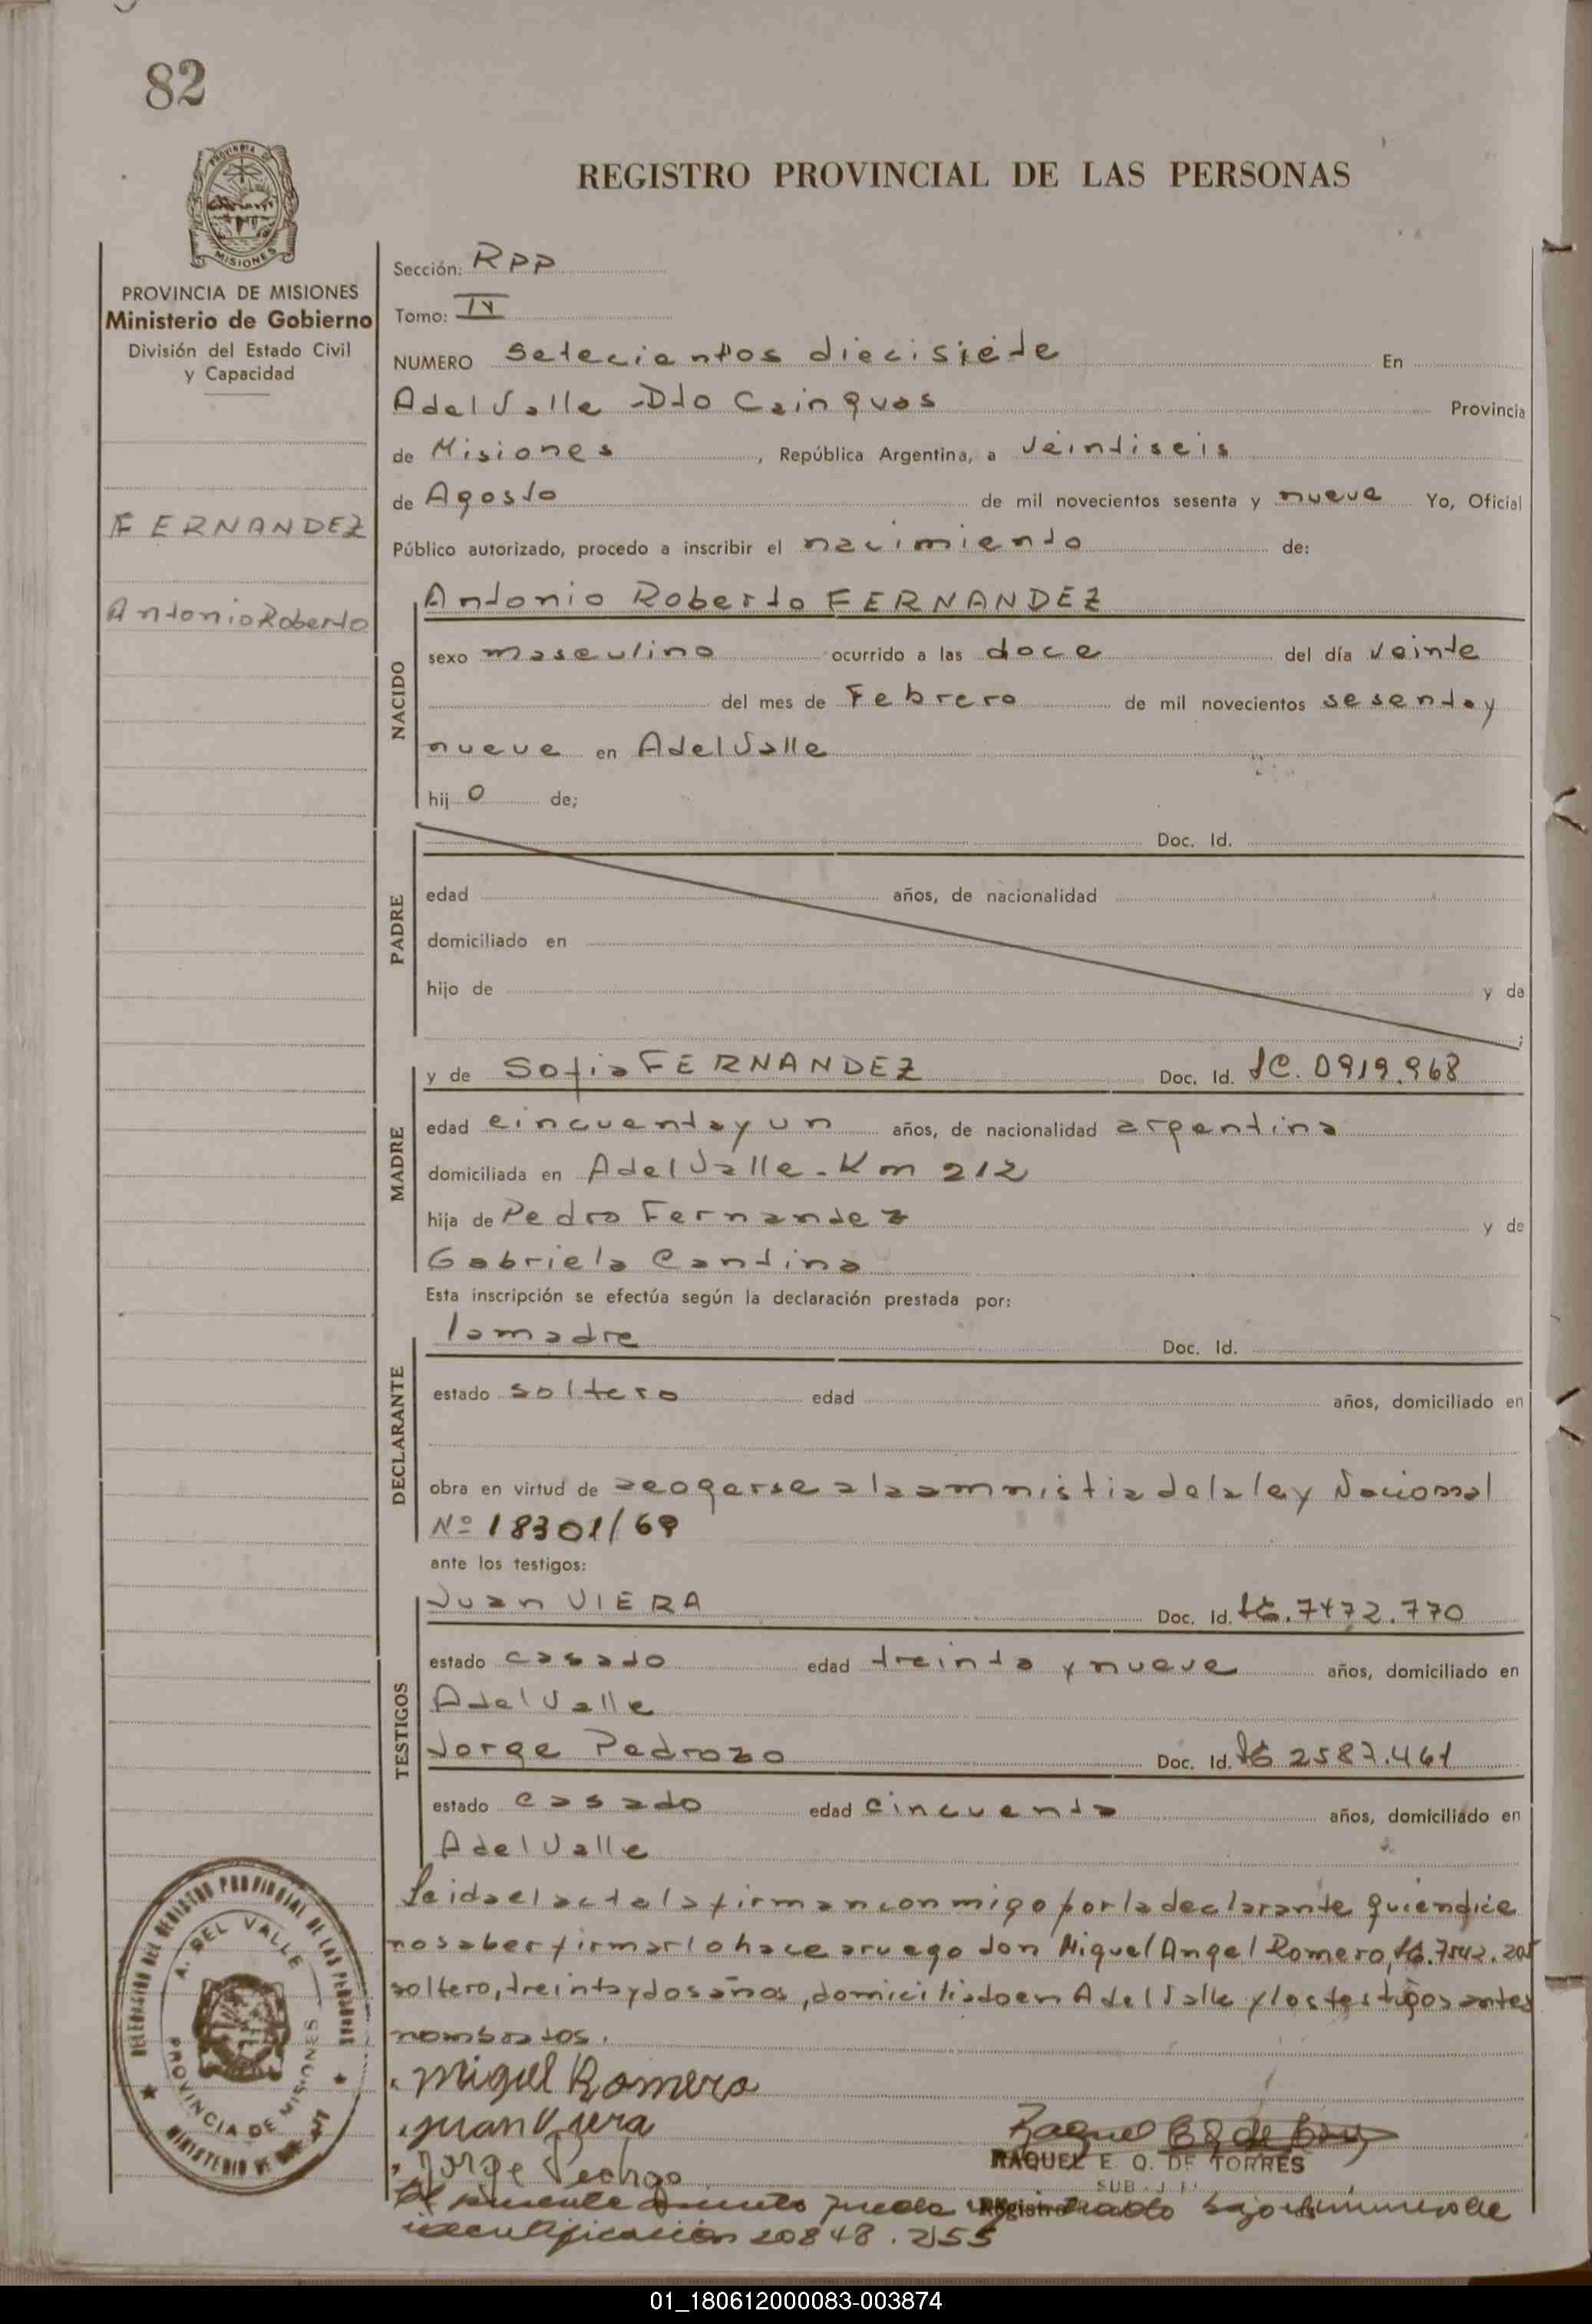 82
REGISTRO PROVINCIAL DE LAS PERSONAS
PROVINCIA DE MISIONES
Ministerio de Gobierno
División del Estado Civil
y Capacidad
FERNANDEZ
Antonio Roberto
Sección: RPP
Tomo: IV
NUMERO Setecientos diecisiete En
A del Valle - Dto Cainguas Provincia
de Misiones, República Argentina, a Veintiseis
de Agosto de mil novecientos sesenta y nueve Yo, Oficial
Público autorizado, procedo a inscribir el nacimiento de:
NACIDO
Antonio Roberto FERNANDEZ
sexo masculino ocurrido a las doce del día veinte
del mes de Febrero de mil novecientos sesenta y
nueve en A del Valle
hijo de;
PADRE
Doc. Id.
edad años, de nacionalidad
domiciliado en
hijo de y de
;
MADRE
y de Sofia FERNANDEZ Doc. Id. LC. 0919.968
edad cincuenta y un años, de nacionalidad argentina
domiciliada en A del Valle - Km 212
hija de Pedro Fernandez y de
Gabriela Cantina
Esta inscripción se efectúa según la declaración prestada por:
DECLARANTE
la madre Doc. Id.
estado soltero edad años, domiciliado en
obra en virtud de acogerse a la amnistia de la ley Nacional
Nº 18301/69
ante los testigos:
TESTIGOS
Juan VIERA Doc. Id. 7472.770
estado casado edad treinta y nueve años, domiciliado en
A del Valle
Jorge Pedrozo Doc. Id. 2587.461
estado casado edad cincuenta años, domiciliado en
A del Valle
Leida el acta la firman conmigo por la declarante quien dice
no saber firmar lo hace a ruego don Miguel Angel Romero, 7542.205
soltero, treinta y dos años, domiciliado en A del Valle y los testigos antes
nombrados.
Migel Romero
Juan Viera
Jorge Pedrozo
RAQUEL E. O. DE TORRES
SUB-JEF
El presente asiento queda registrado bajo el numero de
identificación 20848.255
DELEGACION DEL REGISTRO PROVINCIAL DE LAS PERSONAS
A. DEL VALLE
PROVINCIA DE MISIONES
01_180612000083-003874